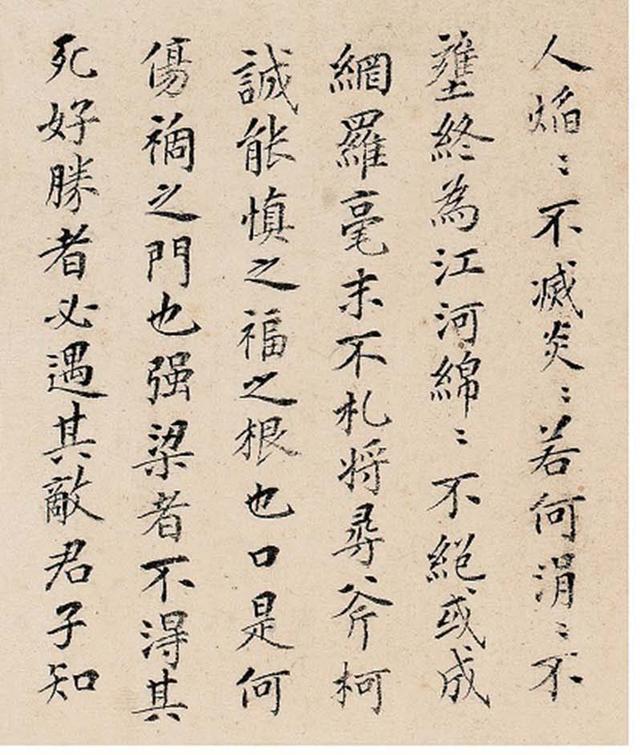 人焰〻不滅炎〻若何涓〻不
壅終為江河綿〻不絕或成
網羅毫末不札將尋斧柯
誠能慎之福之根也口是何
傷禍之門也强梁者不得其
死好勝者必遇其敵君子知